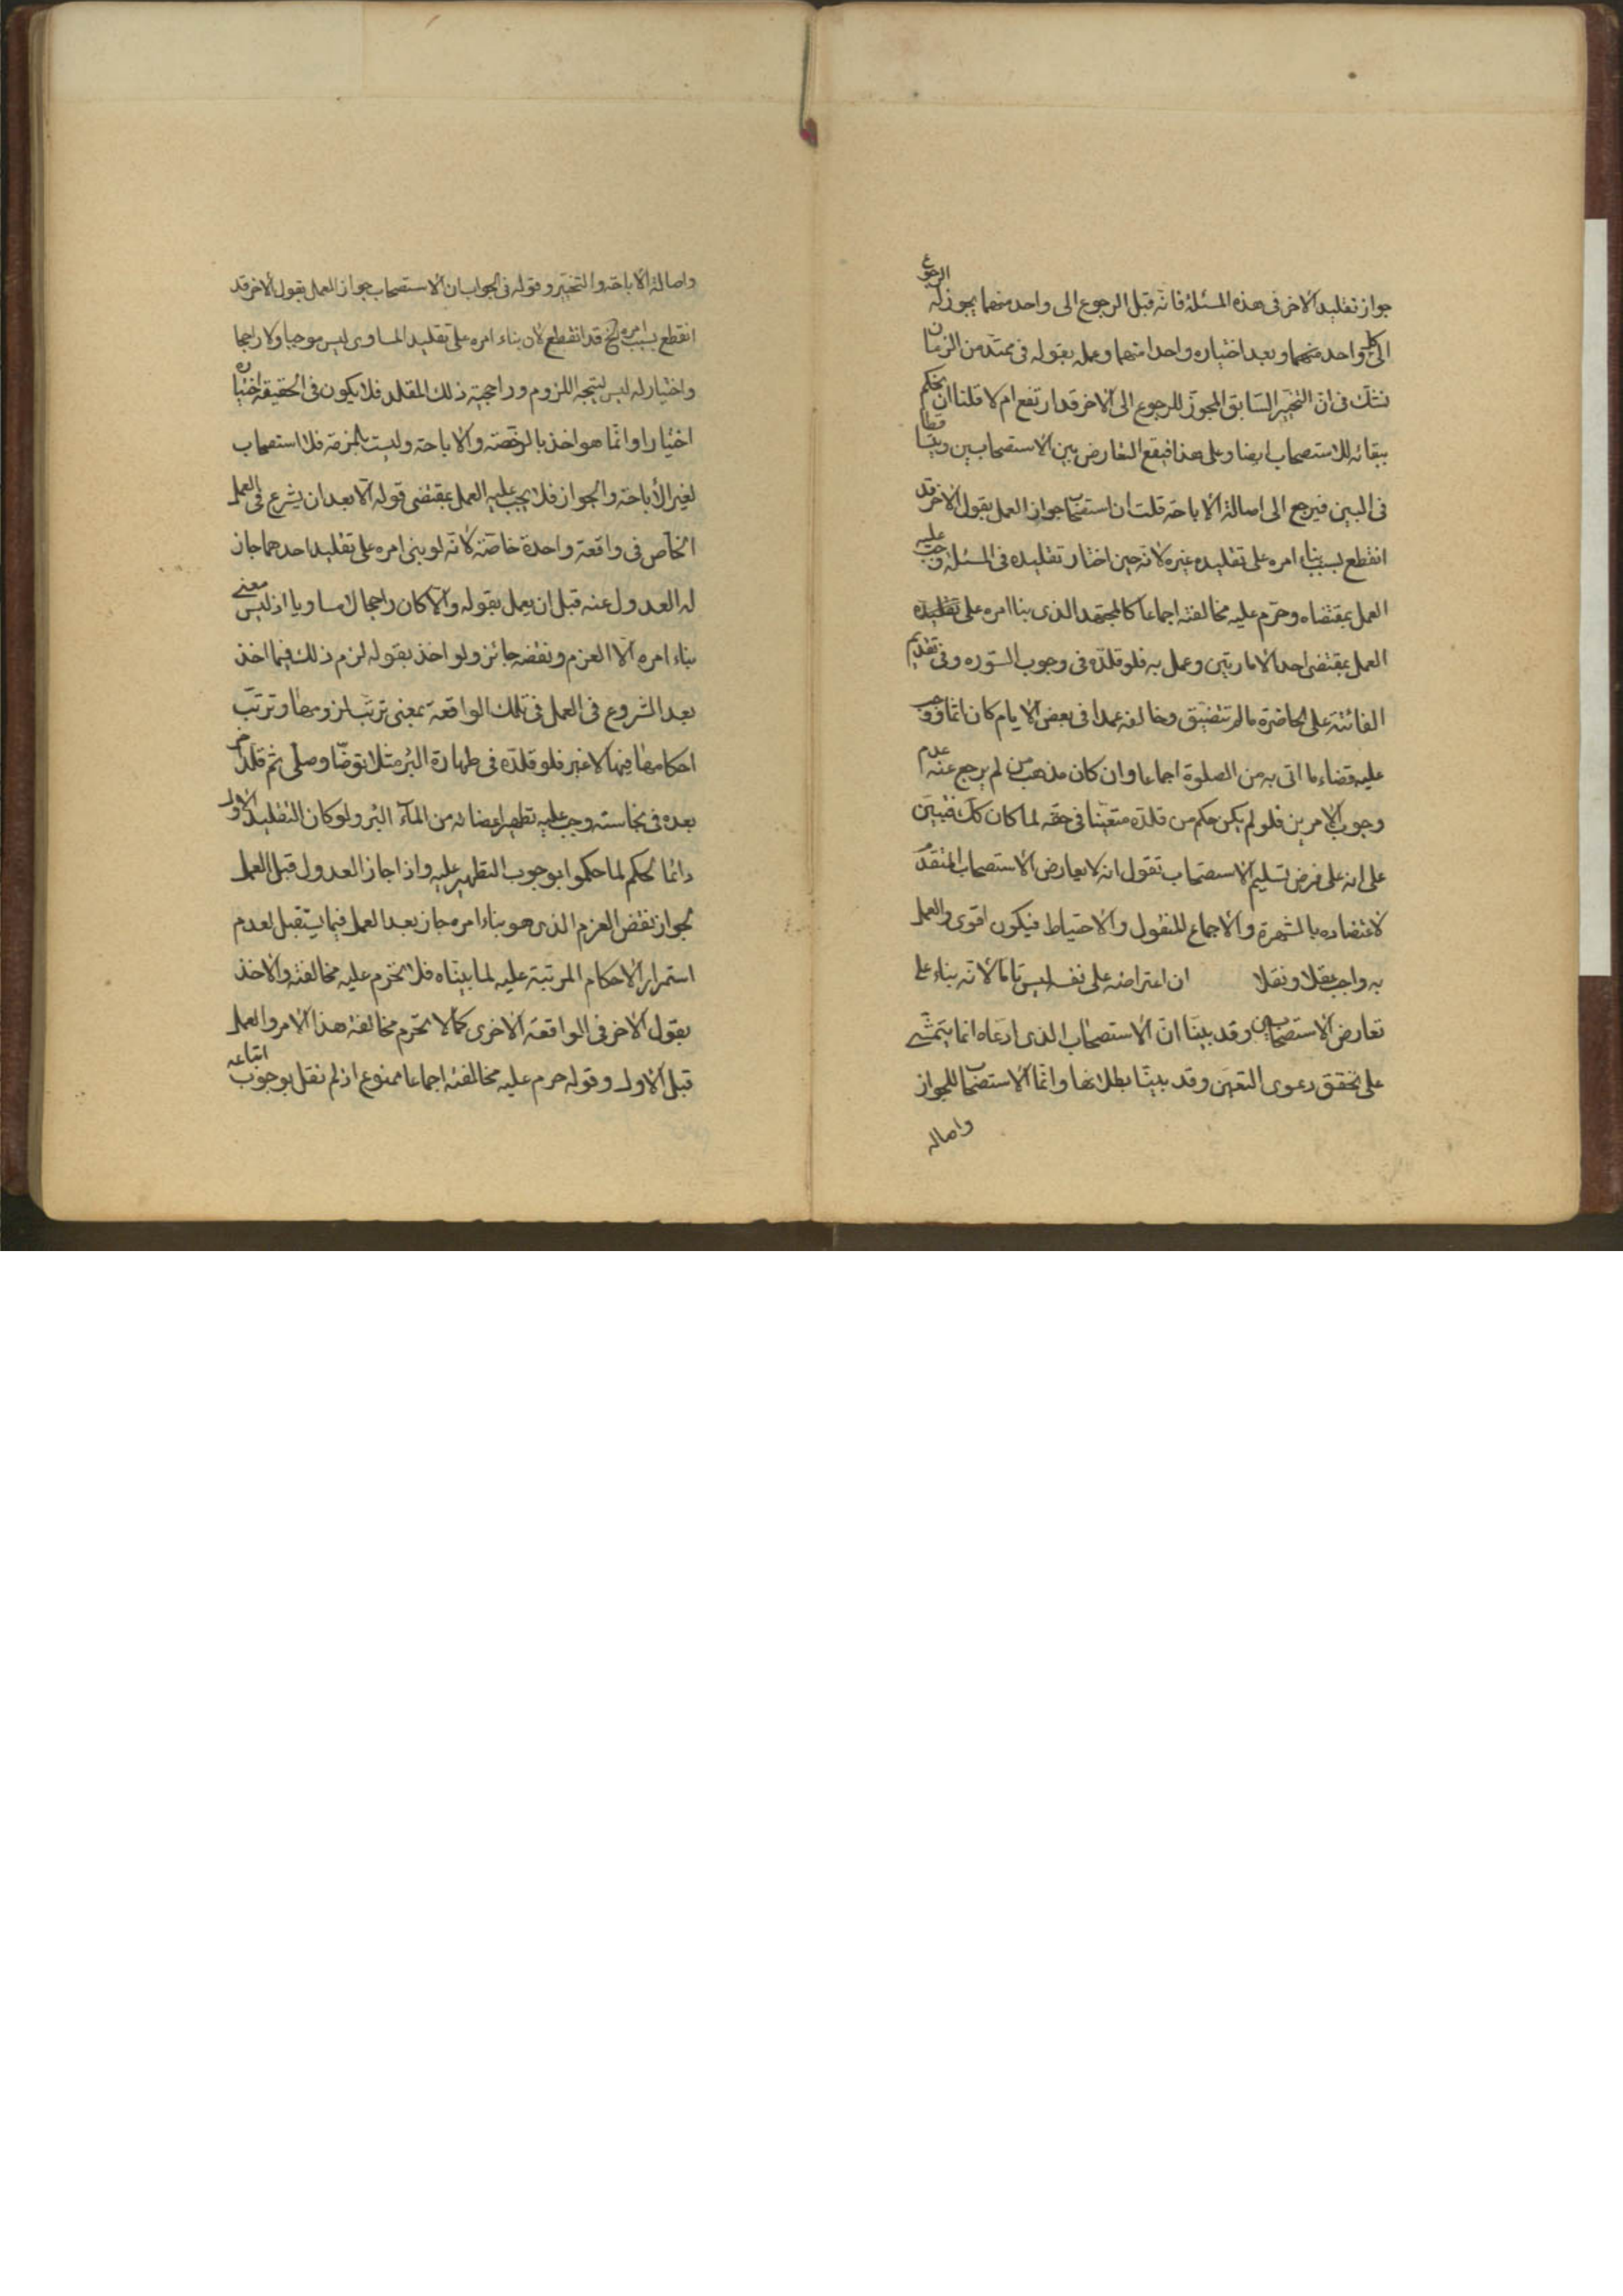 جواز تقليد الاخر فى هذه المسئلة فانه قبل الرجوع الى واحد منهما يجوز له الرجوع
الى كل واحد منهما و بعد اختياره واحدا منهما و عمله بقوله فى ممتد من الزمان
نشك فى ان التخيير السابق المجوز للرجوع الى الاخر قد ارتفع ام لا قلنا ان نحكم
ببقائه للاستصحاب ايضا و على هذا فيقع التعارض بين الاستصحابين و يتساقطا
فى البين فيرجع الى اصالة الاباحة قلت ان استصحاب جواز العمل بقول الاخر قد
انقطع بسبب بناء امره على تقليده غيره لانه حين اختار تقليده فى المسئلة وجب عليه
العمل بمقتضاه و حرم عليه مخالفته اجماعا كالمجتهد الذى بنا امره على تقليده
العمل بمقتضى احد الامارتين و عمل به فلو قلده فى وجوب السوره و فى تقديم
الفائتة على الحاضرة ما لم تتضيق و خالفه عمدا فى بعض الايام كان اثما و وجب
عليه قضاء ما اتى به من الصلوة اجماعا و ان كان مذهب من لم يرجع عنه عدم
وجوب الامرين فلو لم يكن حكم من قلده متعينا فى حقه لما كان كك فتبين
على انه على فرض تسليم الاستصحاب تقول انه لا يعارض الاستصحاب المتقدم
لاعتضاده بالشهرة و الاجماع المنقول و الاحتياط فيكون اقوى و العمل
به واجب عقلا و نقلا ان اعتراضه على نفسه ليس تاما لانه بناء على
تعارض الاستصحابين و قد بينا ان الاستصحاب الذى ادعاه انما يتمشى
على تحقق دعوى التعين و قد بينا بطلانها و انما الاستصحاب للجواز
و اصالة
و اصالة الاباحة و التخيير و قوله فى الجواب ان الاستصحاب جواز العمل بقول الاخر قد
انقطع بسبب امره الخ قد انقطع لان بناء امره على تقليد المساوى ليس موجبا و لا راجحا
و اختيار له ليس ليتجه اللزوم و راجحية ذلك المقلد فلا يكون فى الحقيقة اختياره
اختيارا و انما هو اخذ بالرخصة و الاباحة و ليست بالمزمة فلا استصحاب
لغير الاباحة و الجواز فلا يجب عليه العمل بمقتضى قوله الا بعد ان يشرع فى العمل
الخاص فى واقعة واحدة خاصة لانه لو بنى امره على تقليد احدهما جاز
له العدول عنه قبل ان يعمل بقوله و الا كان راجحا لا مساويا اذ ليس معنى
بناء امره الا العزم و نقضه جائز و لو اخذ بقوله لزم ذلك فيما اخذ
بعد الشروع فى العمل فى تلك الواقعة بمعنى ترتب لزومها و ترتب
احكامها فيها لا غير فلو قلده فى طهارة البئر مثلا توضا و صلى ثم قلد اخر
بعده فى نجاسته وجب عليه تطهير اعضائه من الماء البئر و لو كان التقليد الاول
دائما لحكم لما حكموا بوجوب التطهير عليه و اذا جاز العدول قبل العمل
لجواز نقض العزم الذى هو بناء امره جاز بعد العمل فيما يستقبل لعدم
استمرار الاحكام المرتبة عليه لما بيناه فلا تحرم عليه مخالفته و الاخذ
بقول الاخر فى الواقعة الاخرى كما لا تحرم مخالفة هذا الامر و العمل
قبل الاول و قوله حرم عليه مخالفته اجماعا ممنوع اذ لم نقل بوجوب اتباعه